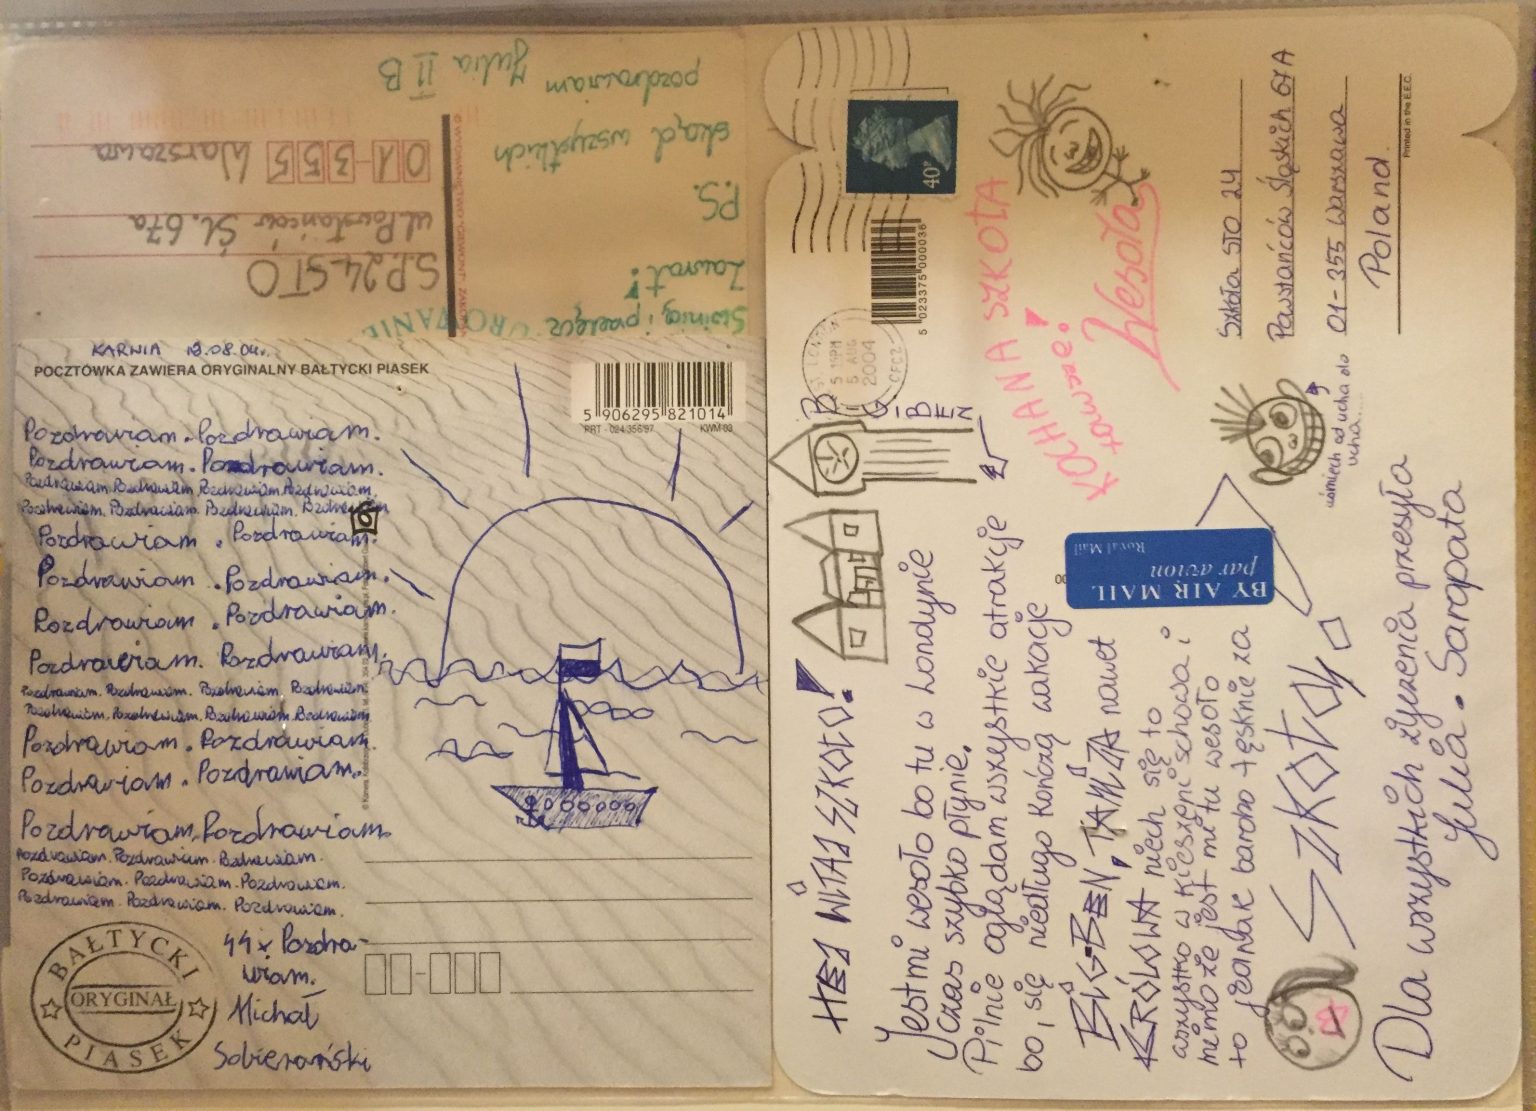 Świnią i przełęcz
Zawrat!
P.S.
skąd wszystkich
pozdrawiam Julia II B
S.P. 24 STO
ul. Powstańców Śl. 67a
01-355 Warszawa
KARWIA 12.08.04r.
POCZTÓWKA ZAWIERA ORYGINALNY BAŁTYCKI PIASEK
5 906295 821014
PRT - 024/356/97 KWM 03
Pozdrawiam. Pozdrawiam.
Pozdrawiam. Pozdrawiam.
Pozdrawiam. Pozdrawiam. Pozdrawiam. Pozdrawiam.
Pozdrawiam. Pozdrawiam. Pozdrawiam. Pozdrawiam.
Pozdrawiam. Pozdrawiam.
Pozdrawiam. Pozdrawiam.
Pozdrawiam. Pozdrawiam.
Pozdrawiam. Pozdrawiam.
Pozdrawiam. Pozdrawiam. Pozdrawiam. Pozdrawiam.
Pozdrawiam. Pozdrawiam. Pozdrawiam. Pozdrawiam.
Pozdrawiam. Pozdrawiam.
Pozdrawiam. Pozdrawiam.
Pozdrawiam. Pozdrawiam.
Pozdrawiam. Pozdrawiam. Pozdrawiam.
Pozdrawiam. Pozdrawiam. Pozdrawiam.
Pozdrawiam. Pozdrawiam. Pozdrawiam.
44x Pozdra-
wiam.
Michał
BAŁTYCKI PIASEK
ORYGINAŁ
HEJ WITAJ SZKOŁO!
BIG-BEN
Jestmi wesoło bo tu w Londynie
Czas szybko płynie.
Pilnie oglądam wszystkie atrakcje
bo, się niedługo kończą wakacje
BIG-BEN, TAMIZA nawet
KRÓLOWA niech się to
wszystko w kieszeni schowa i
mimo że jest mi tu wesoło
to jednak bardzo tęsknię za
SZKOŁĄ
Dla wszystkich życzenia przesyła
Julia. Sarapata
KOCHANA SZKOŁA
zawsze!
Wesoła
uśmiech od ucha do
ucha....
BY AIR MAIL
par avion
Royal Mail
40P
5 023375 000036
LONDON
5 AUG
2004
Szkoła STO 24
Powstańców Śląskich 67A
01-355 Warszawa
Poland
Printed in the E.E.C.